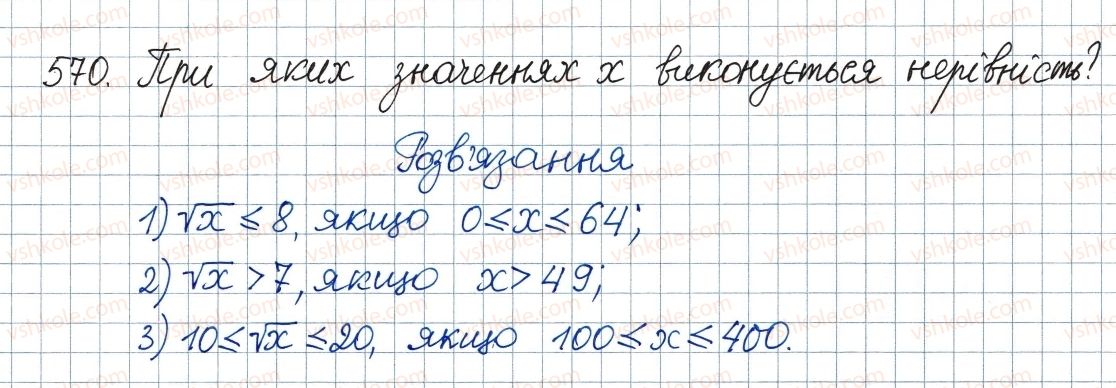 570. При яких значеннях x виконується нерівність?
Розв'язання
1) √x ≤ 8, якщо 0 ≤ x ≤ 64;
2) √x > 7, якщо x > 49;
3) 10 ≤ √x ≤ 20, якщо 100 ≤ x ≤ 400.